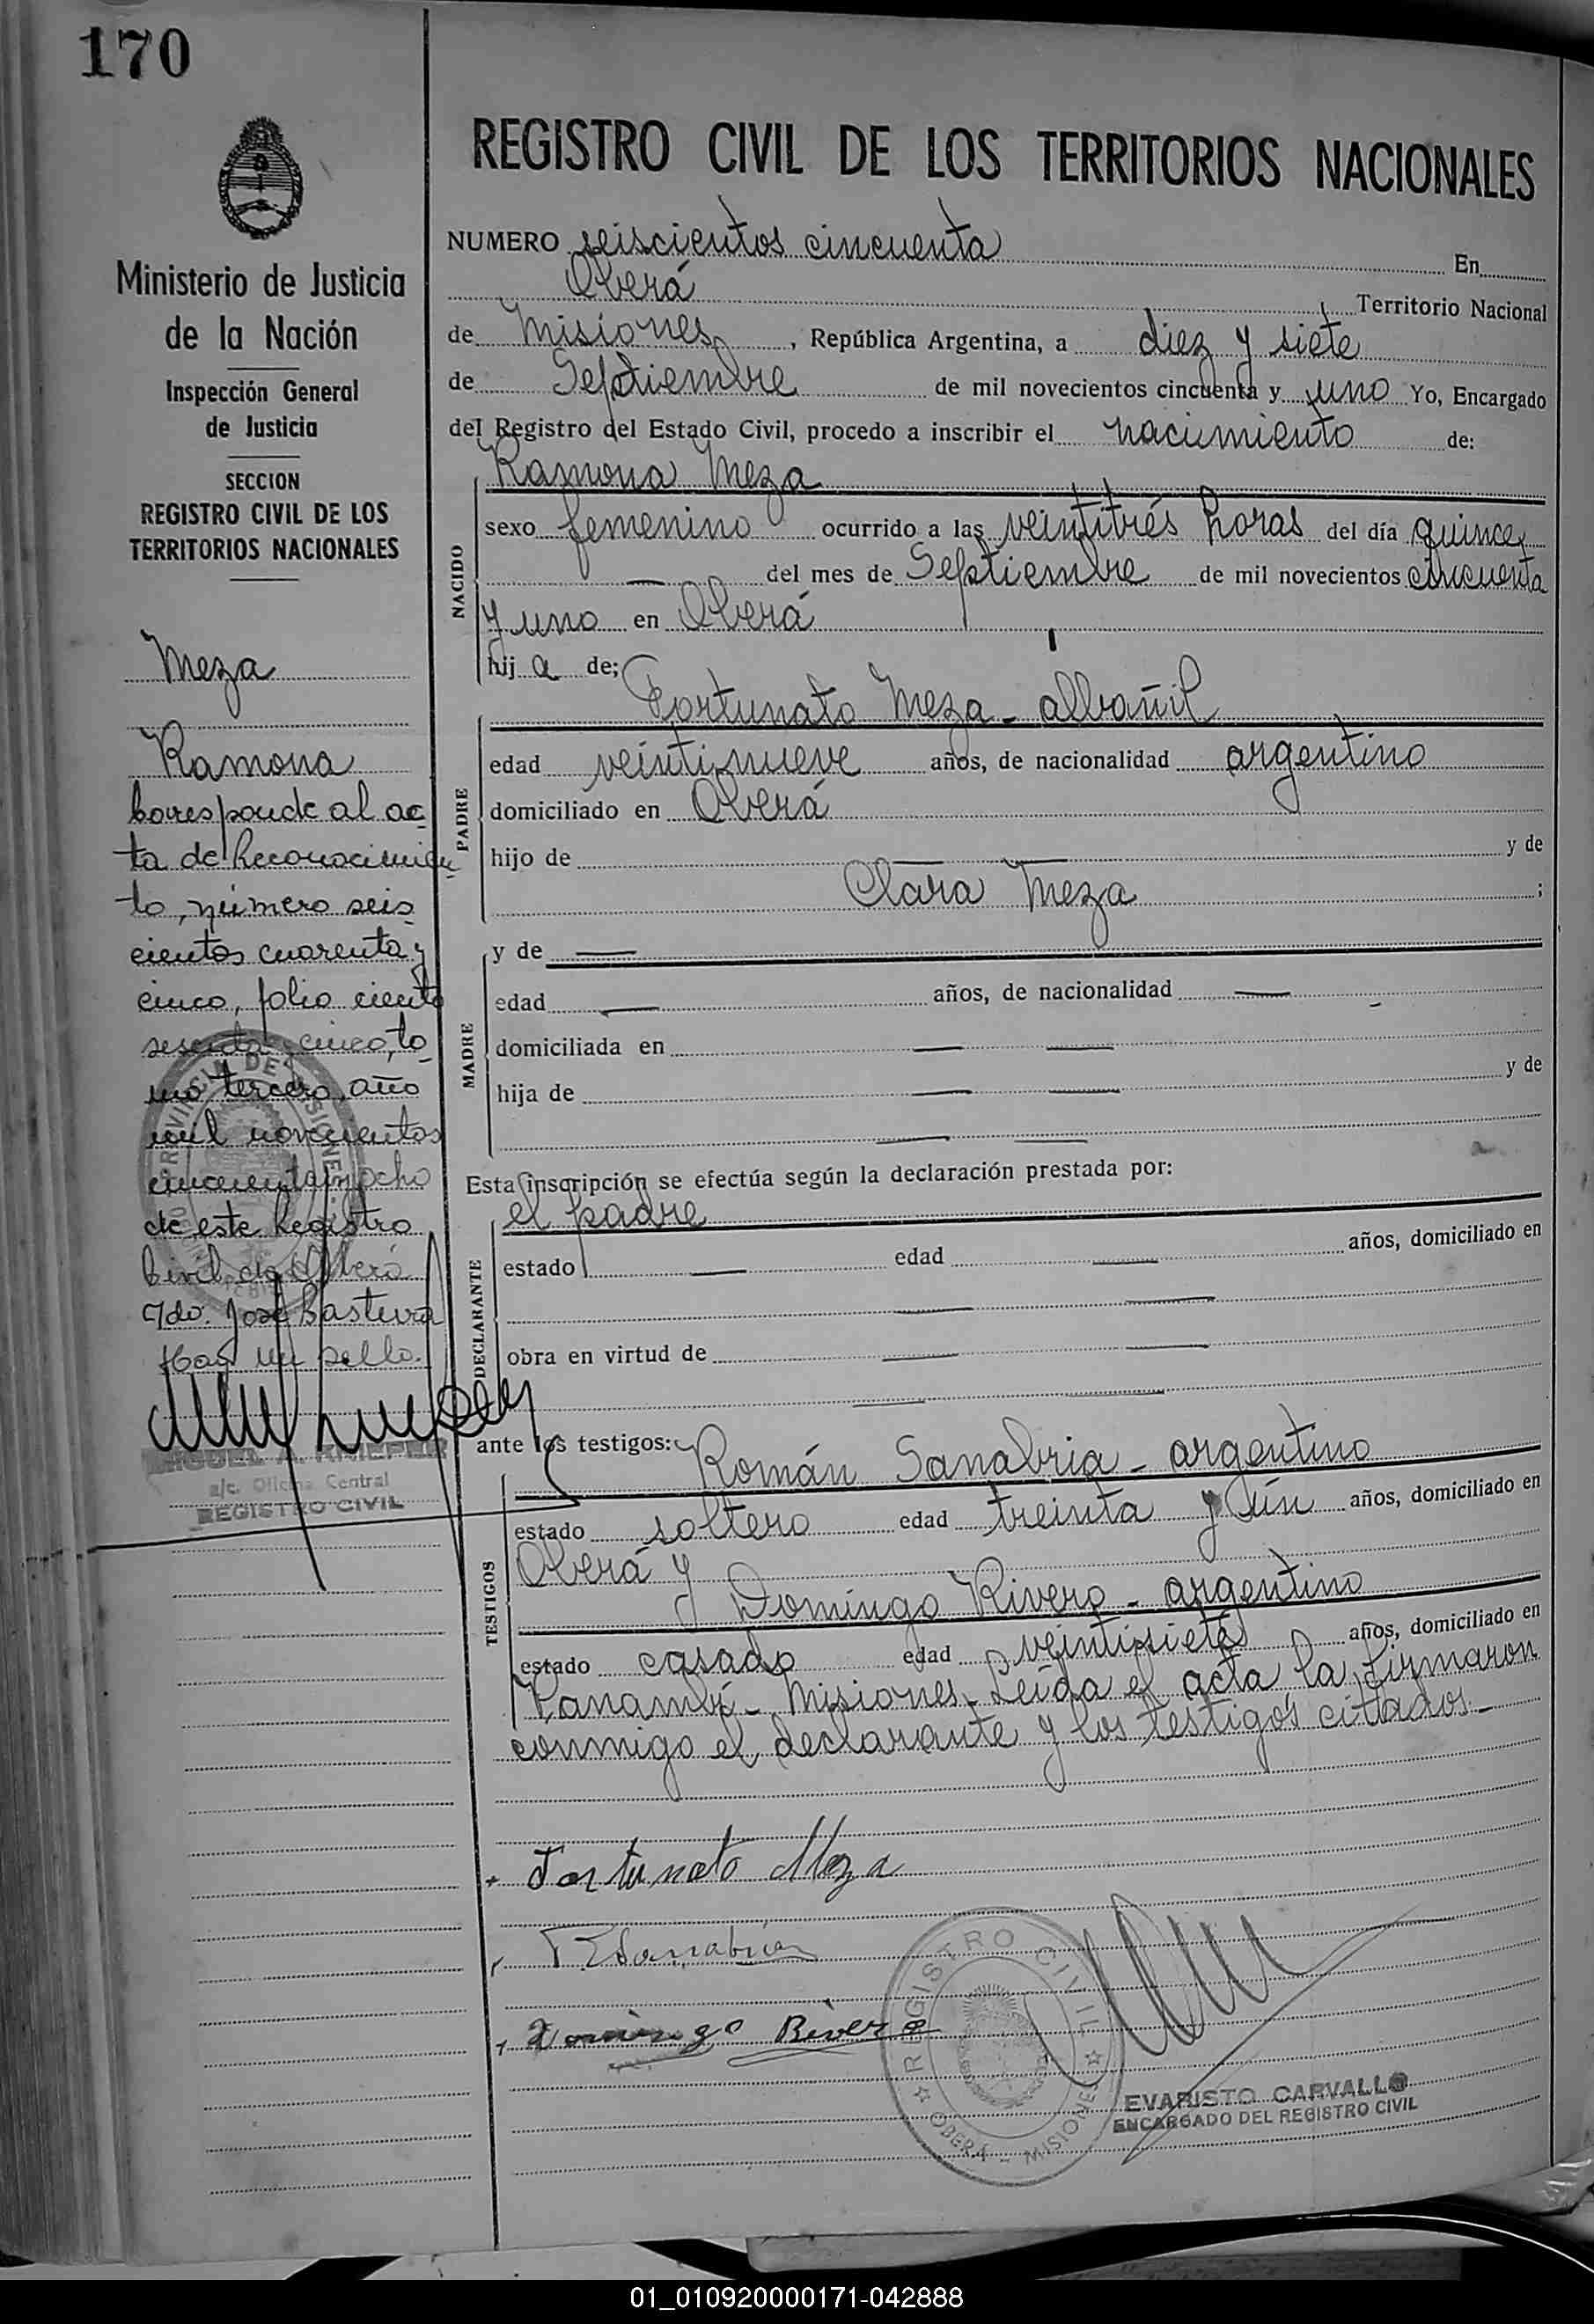 170
Ministerio de Justicia
de la Nación
Inspección General
de Justicia
SECCION
REGISTRO CIVIL DE LOS
TERRITORIOS NACIONALES
Meza
Ramona
Corresponde al ac
ta de Reconocimien
to, número seis
cientos cuarenta y
cinco, folio ciento
sesenta y cinco, to
mo tercero, año
mil novecientos
cincuenta y ocho
de este Registro
Civil de Oberá
Hay un sello.
MIGUEL A. KNIEPER
a/c. Oficina Central
REGISTRO CIVIL
REGISTRO CIVIL DE LOS TERRITORIOS NACIONALES
NUMERO seiscientos cincuenta En
Oberá Territorio Nacional
de Misiones, República Argentina, a diez y siete
de Septiembre de mil novecientos cincuenta y uno Yo, Encargado
del Registro del Estado Civil, procedo a inscribir el nacimiento de:
Ramona Meza
NACIDO
sexo femenino ocurrido a las veintitrés horas del día quince
— del mes de Septiembre de mil novecientos cincuenta
y uno en Oberá
hij a de;
Fortunato Meza - albañil
PADRE
edad veintinueve años, de nacionalidad argentino
domiciliado en Oberá
hijo de — — y de
Clara Meza ;
MADRE
y de —
edad — años, de nacionalidad — -
domiciliada en — —
hija de — — y de
— —
Esta inscripción se efectúa según la declaración prestada por:
el padre
DECLARANTE
estado — edad — años, domiciliado en
— —
obra en virtud de — —
— —
ante los testigos:
Román Sanabria - argentino
TESTIGOS
estado soltero edad treinta y un años, domiciliado en
Oberá y
Domingo Rivero - argentino
estado casado edad veintisiete años, domiciliado en
Panambí - Misiones - Leída el acta la firmaron
conmigo el declarante y los testigos citados -
Fortunato Meza
R Sanabria
Domingo Rivero
REGISTRO CIVIL
OBERÁ - MISIONES
EVARISTO CARVALLO
ENCARGADO DEL REGISTRO CIVIL
01_010920000171-042888